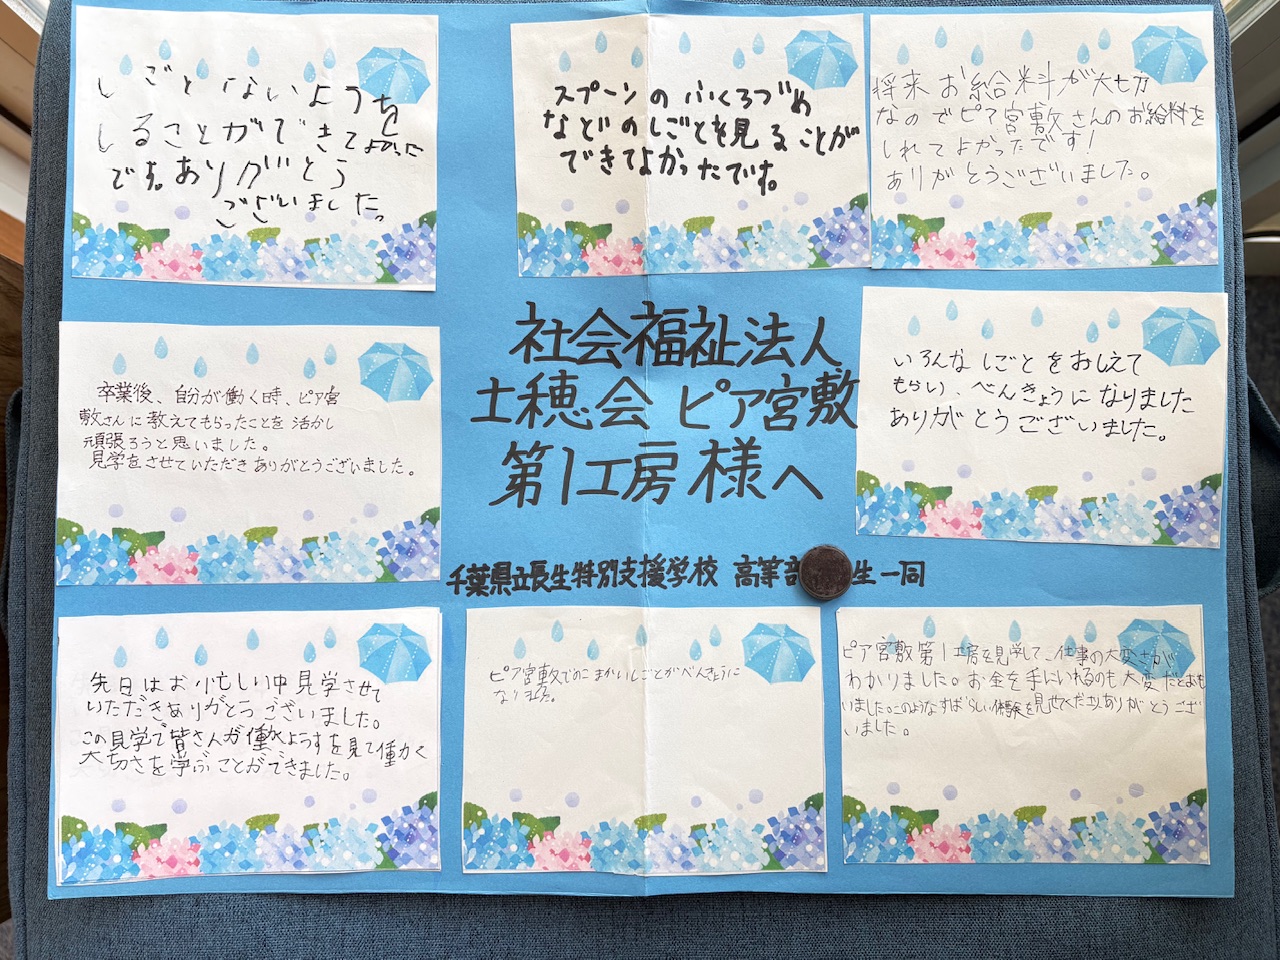 しごとないようち
しることができてよかった
です。ありがとう
ございました。
スプーンのふくろづめ
などのしごとを見ることが
できてよかったです。
将来お給料が大切
なのでピア宮敷さんのお給料を
しれてよかったです!
ありがとうございました。
社会福祉法人
土穂会 ピア宮敷
第1工房様へ
卒業後、自分が働く時、ピア宮
敷さんに教えてもらったことを活かし
頑張ろうと思いました。
見学をさせていただきありがとうございました。
いろんなしごとをおしえて
もらい、べんきょうになりました
ありがとうございました。
千葉県立長生特別支援学校 高等部 生一同
先日はお忙しい中見学させて
いただきありがとうございました。
この見学で皆さんが働くようすを見て働く
大切さを学ぶことができました。
ピア宮敷でのこまかいしごとがべんきょうに
なり
ピア宮敷第1工房を見学して、仕事の大変さが
わかりました。お金を手にいれるのも大変だとおも
いました。このようなすばらしい体験を見せてくださりありがとうござ
いました。